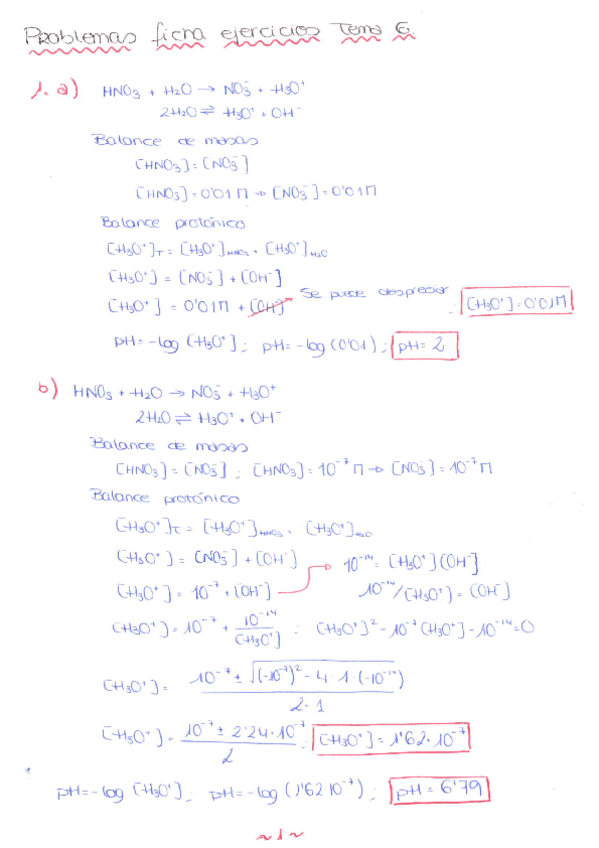 Problemas ficha ejercicios Tema 6.
1. a) HNO₃ + H₂O → NO₃⁻ + H₃O⁺
2H₂O ⇌ H₃O⁺ + OH⁻
Balance de masas
[HNO₃] = [NO₃⁻]
[HNO₃] = 0'01 M → [NO₃⁻] = 0'01 M
Balance protónico
[H₃O⁺]T = [H₃O⁺]HNO₃ + [H₃O⁺]H₂O
[H₃O⁺] = [NO₃⁻] + [OH⁻]
[H₃O⁺] = 0'01 M + [OH⁻] Se puede despreciar : [H₃O⁺] = 0'01 M
pH = -log [H₃O⁺] ; pH = -log (0'01) ; pH = 2
b) HNO₃ + H₂O → NO₃⁻ + H₃O⁺
2H₂O ⇌ H₃O⁺ + OH⁻
Balance de masas
[HNO₃] = [NO₃⁻] ; [HNO₃] = 10⁻⁷ M → [NO₃⁻] = 10⁻⁷ M
Balance protónico
[H₃O⁺]T = [H₃O⁺]HNO₃ + [H₃O⁺]H₂O
[H₃O⁺] = [NO₃⁻] + [OH⁻] 10⁻¹⁴ = [H₃O⁺][OH⁻]
[H₃O⁺] = 10⁻⁷ + [OH⁻] 10⁻¹⁴/[H₃O⁺] = [OH⁻]
[H₃O⁺] = 10⁻⁷ + 10⁻¹⁴/[H₃O⁺] ; [H₃O⁺]² - 10⁻⁷ [H₃O⁺] - 10⁻¹⁴ = 0
[H₃O⁺] = 10⁻⁷ ± √((-10⁻⁷)² - 4 · 1 · (-10⁻¹⁴)) / 2 · 1
[H₃O⁺] = 10⁻⁷ ± 2'24 · 10⁻⁷ / 2 ; [H₃O⁺] = 1'62 · 10⁻⁷
pH = -log [H₃O⁺] ; pH = -log (1'62 10⁻⁷) ; pH = 6'79
~ 1 ~